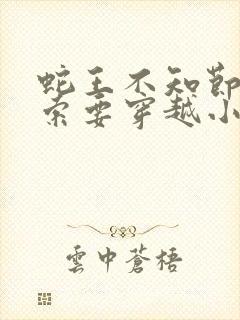 蛇王不知节
索要穿越小
雲中蒼梧